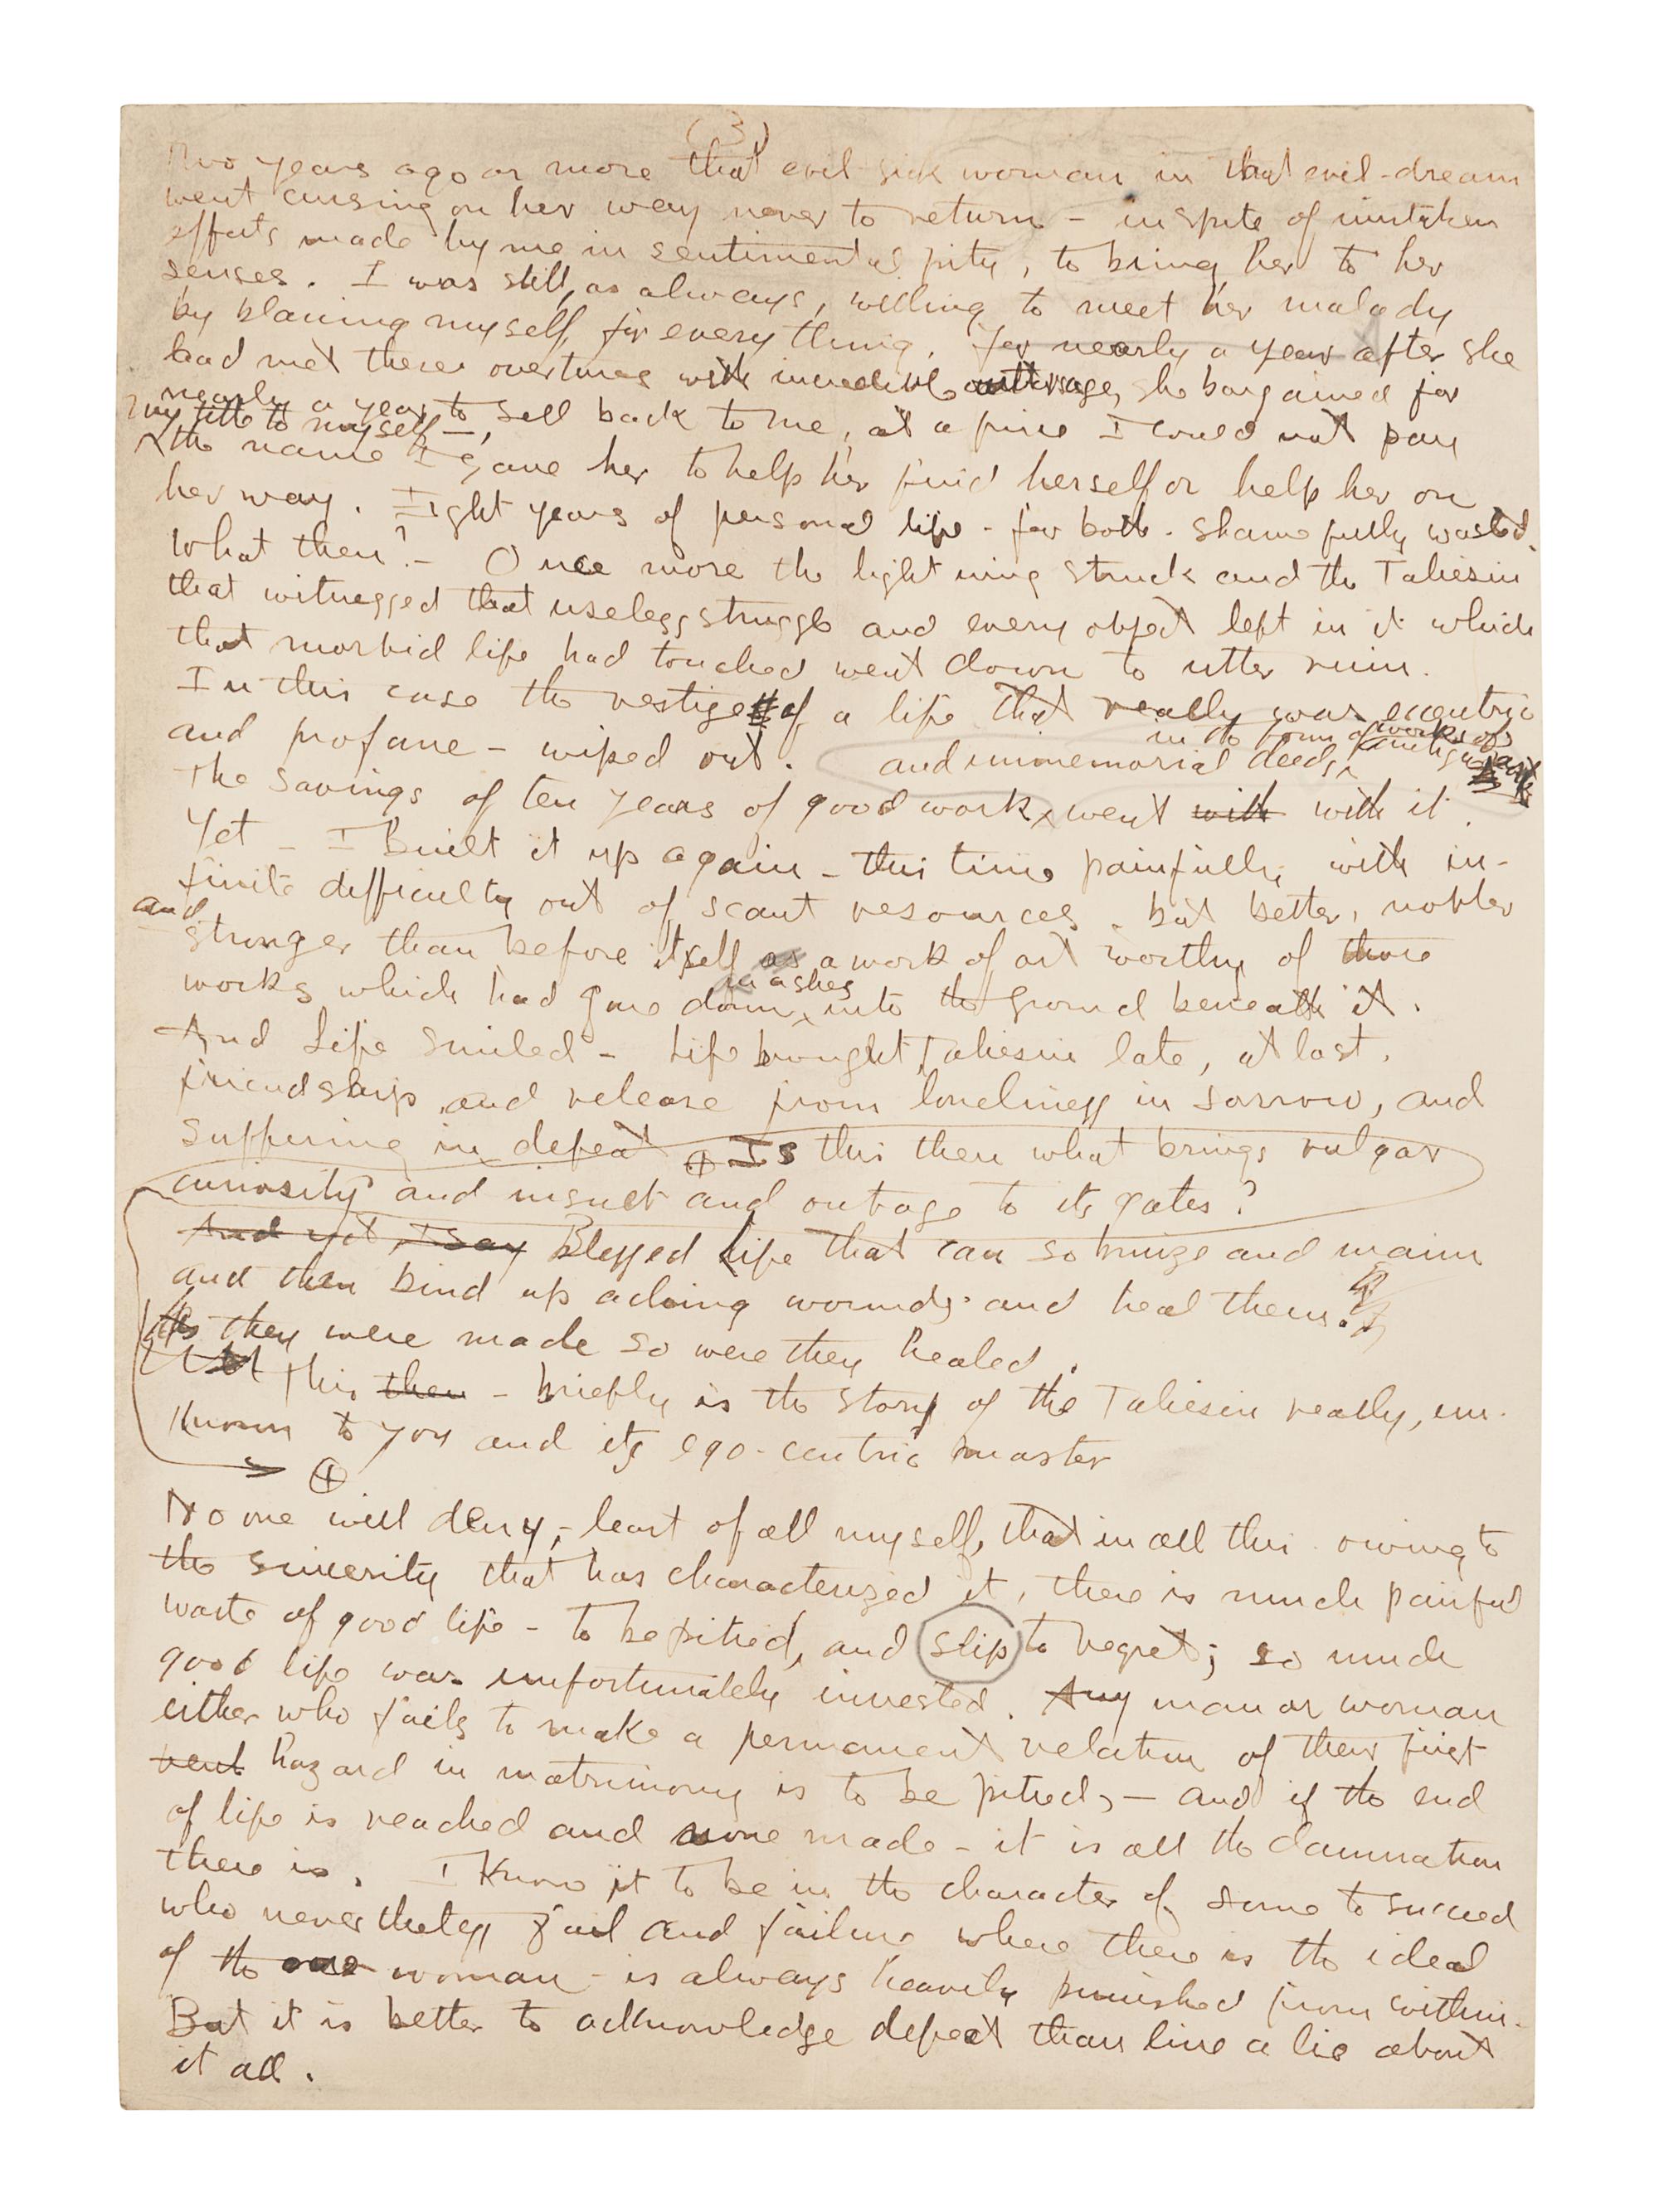 (3)
Two years ago or more that evil sick woman in that evil-dream
went cursing on her way never to return - in spite of mistaken
efforts made by me in sentimental pity, to bring her to her
senses. I was still, as always, willing to meet her malady
by blaming myself, for every thing. for nearly a year after she
had met these overtures with incredible outrage, she bargained for
nearly a year to sell back to me, at a price I could not pay
my title to myself -,
the name I gave her to help her find herself or help her on
her way. Eight years of personal life - for both - shamefully wasted.
What then? - Once more the lightning struck and the Taliesin
that witnessed that useless struggle and every object left in it which
that morbid life had touched went down to utter ruin.
In this case the vestige of a life that really was eccentric
and profane - wiped out.
in the form of works of
antique art
and immemorial deeds,
The savings of ten years of good work, went with with it.
Yet - I Built it up again - this time painfully, with in-
finite difficulty out of scant resources. but better, nobler
and
stronger than before itself as a work of art worthy of those
in ashes
works which had gone down into the ground beneath it.
And Life smiled - Life brought Taliesin late, at last,
friendship and release from loneliness in sorrow, and
suffering in defeat Is this then what brings vulgar
curiosity and insult and outrage to its gates?
And yet, I say Blessed life that can so bruize and maim
and then bind up aching wounds and heal them!
As they were made so were they healed.
This then - briefly is the story of the Taliesin really, un-
known to you and its ego-centric master
No one will deny, - least of all myself, that in all this owing to
the sincerity that has characterized it, there is much painful
waste of good life - to be pitied, and slip to regret; so much
good life was unfortunately invested. Any man or woman
either who fails to make a permanent relation of their first
vent hazard in matrimony is to be pitied, - and if the end
of life is reached and none made - it is all the damnation
there is. I know it to be in the character of some to succeed
who nevertheless fail and failure where there is the ideal
of the one woman - is always heavily punished from within.
But it is better to acknowledge defeat than live a lie about
it all.